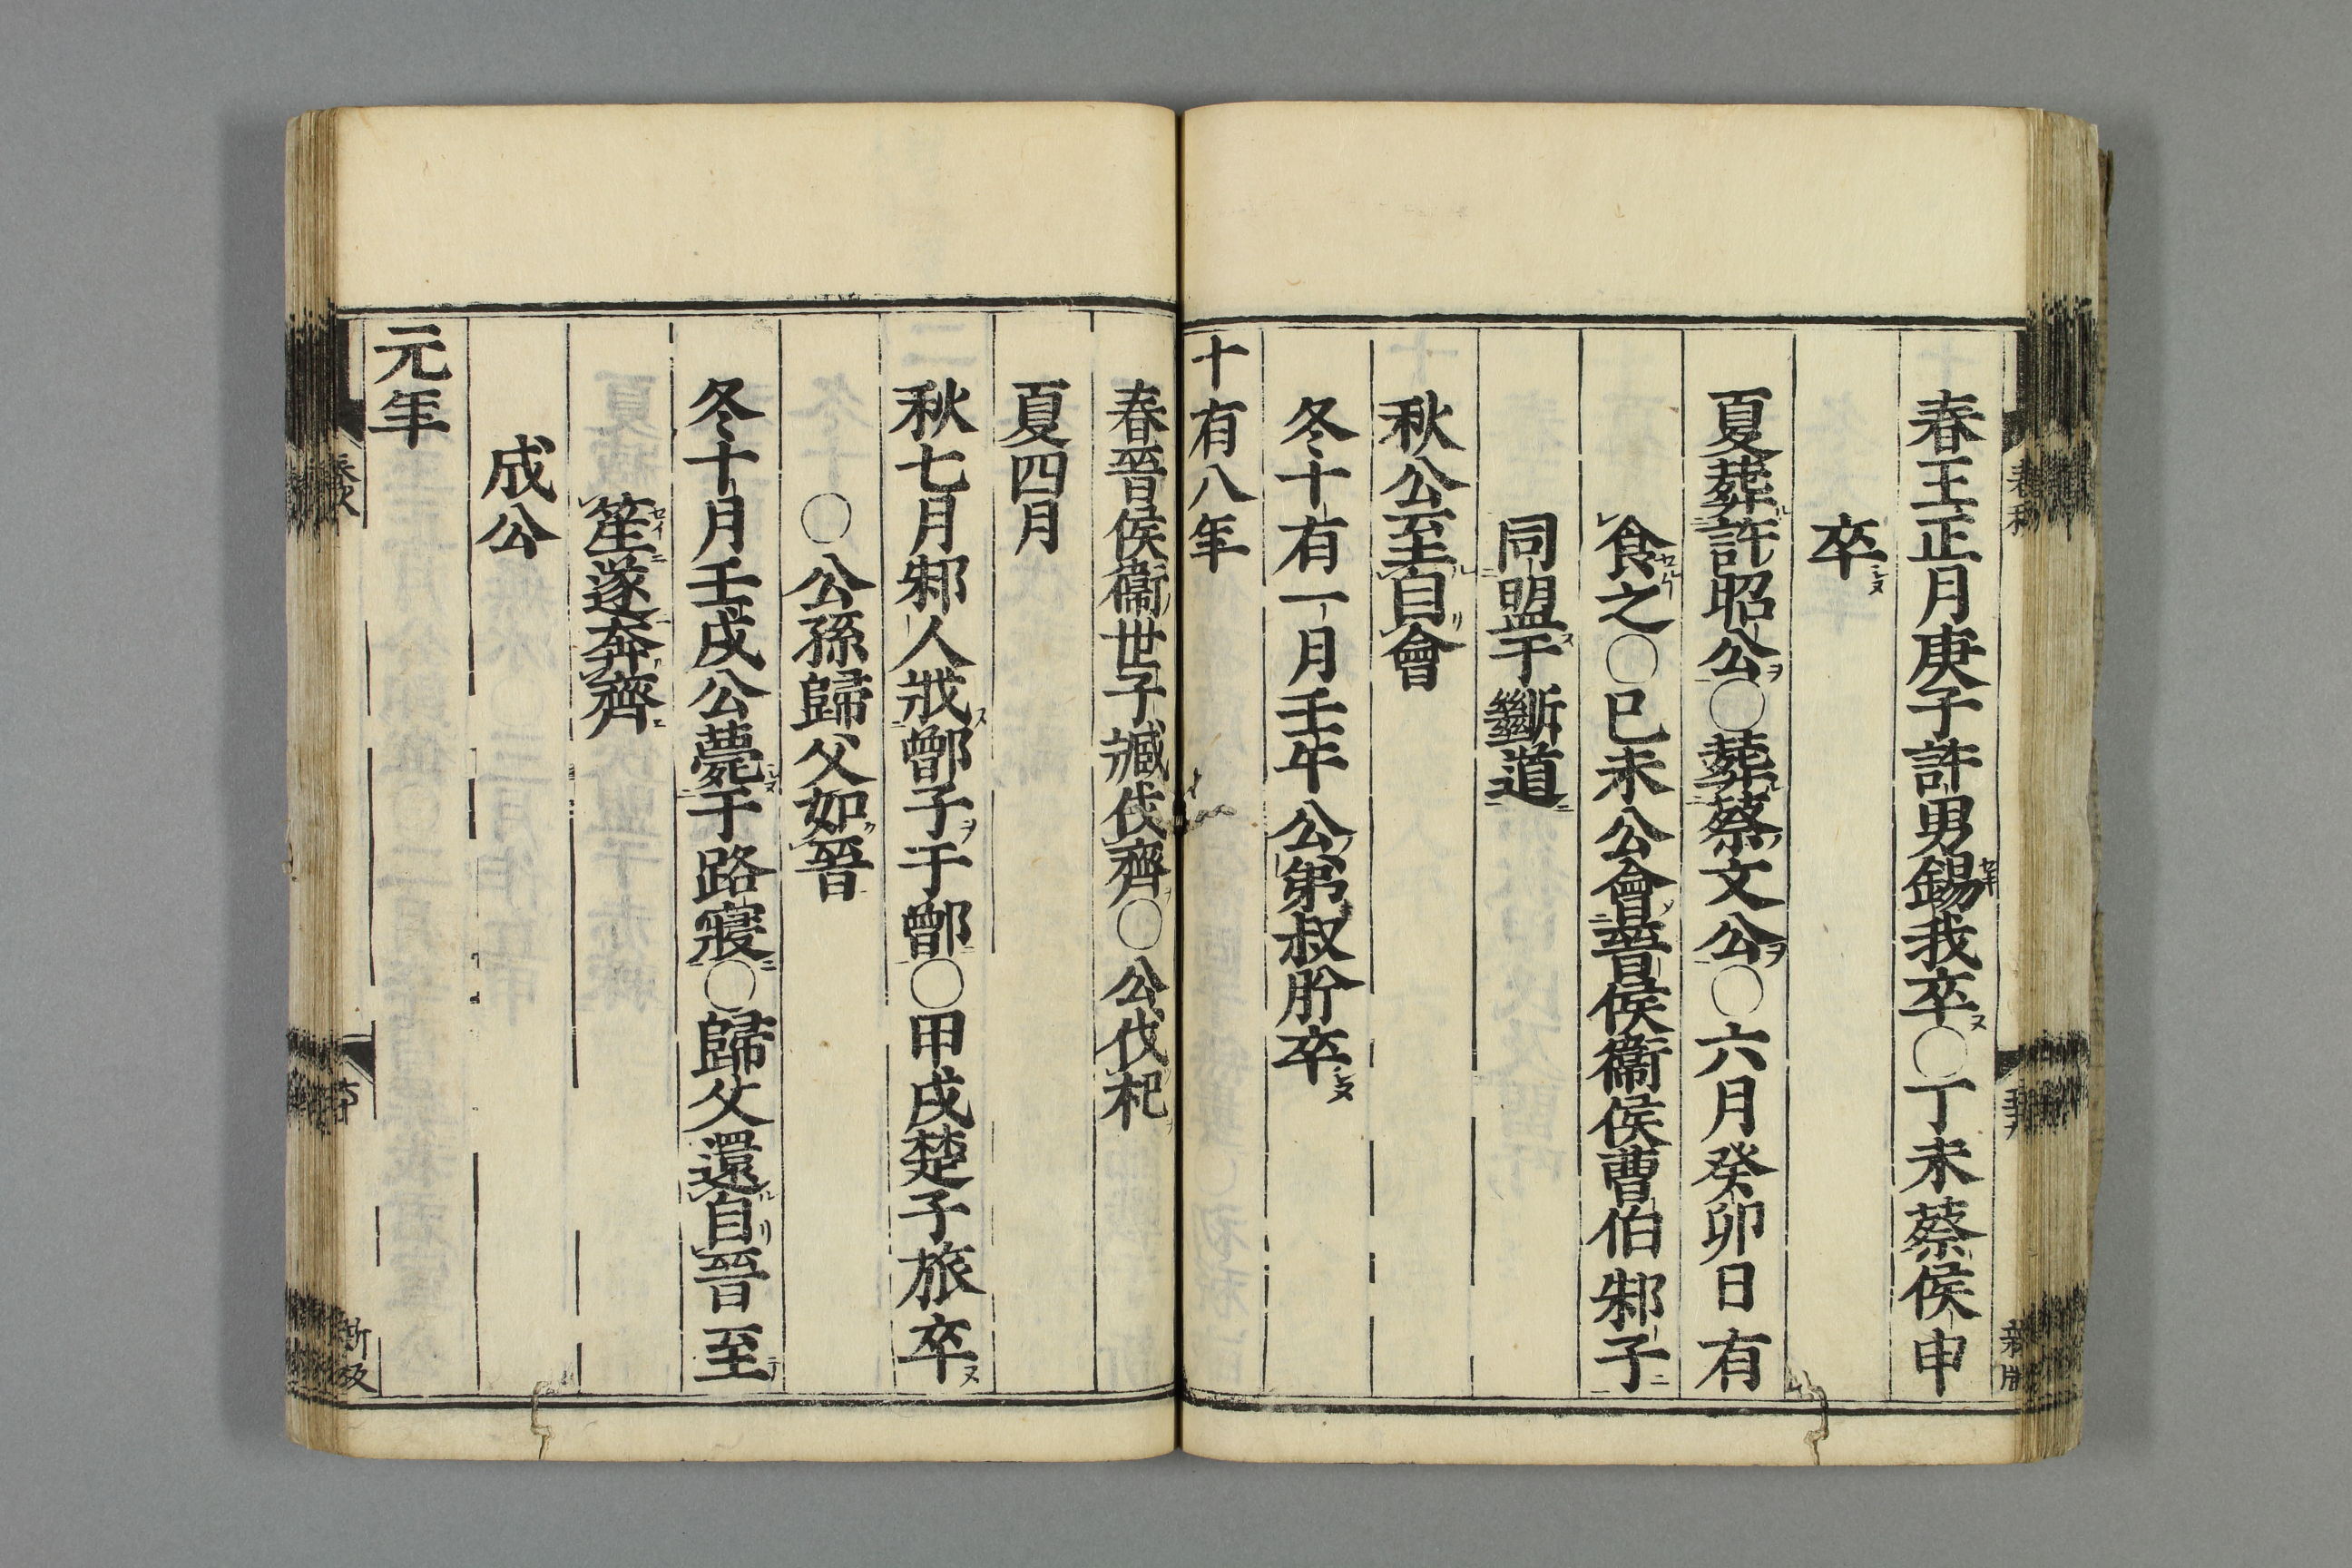 春王正月庚子許男錫我卒○丁未蔡侯申
卒
夏葬許昭公○葬蔡文公○六月癸卯日有
食之○己未公會晉侯衞侯曹伯邾子
同盟于斷道
秋公至自會
冬十有一月壬午公弟叔肸卒
十有八年
春晉侯衞世子臧伐齊○公伐杞
夏四月
秋七月邾人戕鄫子于鄫○甲戌楚子旅卒
○公孫歸父如晉
冬十月壬戌公薨于路寢○歸父還自晉至
笙遂奔齊
成公
元年